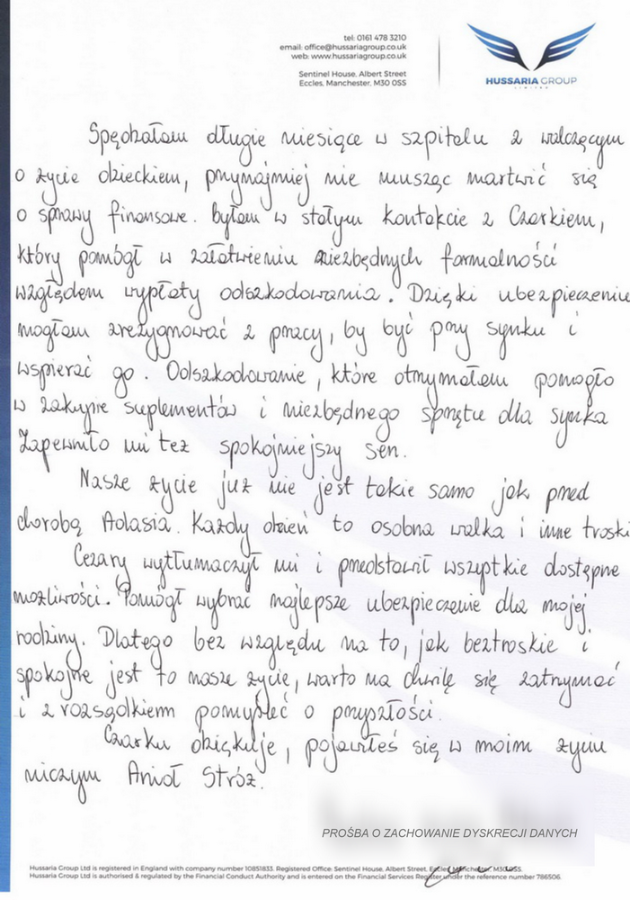 tel: 0161 478 3210
email: office@hussariagroup.co.uk
web: www.hussariagroup.co.uk
Sentinel House, Albert Street
Eccles, Manchester, M30 0SS
HUSSARIA GROUP
LIMITED
Spędzałam długie miesiące w szpitalu z walczącym
o życie dzieckiem, przynajmniej nie musząc martwić się
o sprawy finansowe. byłam w stałym kontakcie z Czarkiem,
który pomógł w załatwieniu niezbędnych formalności
względem wypłaty odszkodowania. Dzięki ubezpieczeniu
mogłam zrezygnować z pracy, by być przy synku i
wspierać go. Odszkodowanie, które otrzymałam pomogło
w zakupie suplementów i niezbędnego sprzętu dla synka
Zapewniło mi też spokojniejszy sen.
Nasze życie już nie jest takie samo jak przed
chorobą Adasia. Każdy dzień to osobna walka i inne troski
Cezary wytłumaczył mi i przedstawił wszystkie dostępne
możliwości. Pomógł wybrać najlepsze ubezpieczenie dla mojej
rodziny. Dlatego bez względu na to, jak beztroskie i
spokojne jest to nasze życie, warto na chwilę się zatrzymać
i z rozsądkiem pomyśleć o przyszłości.
Czarku dziękuje, pojawiłeś się w moim życiu
niczym Anioł Stróż.
PROŚBA O ZACHOWANIE DYSKRECJI DANYCH
Hussaria Group Ltd is registered in England with company number 10851833. Registered Office: Sentinel House, Albert Street, Eccles, Manchester, M30 0SS.
Hussaria Group Ltd is authorised & regulated by the Financial Conduct Authority and is entered on the Financial Services Register under the reference number 786506.